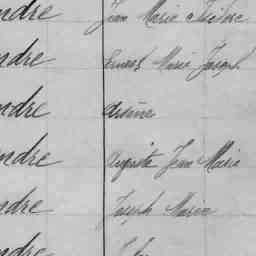 ndre Jean Marie Isidore
ndre Ernest Marie Joseph
ndre Arsène
ndre Auguste Jean Marie
ndre Joseph Marie
ndre